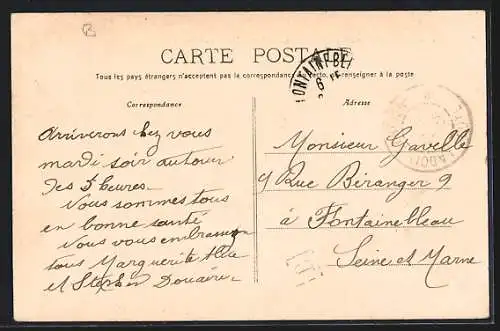 B
CARTE POSTALE
Tous les pays étrangers n'acceptent pas la correspondance au recto, se renseigner à la poste
FONTAINEBLE
6
Correspondance
Adresse
Arriverons chez vous
mardi soir autour
des 5 heures.
Vous sommes tous
en bonne santé
Vous vous embrassons
tous Marguerite Aline
et Stephen Douaire
Monsieur Gavelle
9 Rue Béranger 9
à Fontainebleau
Seine et Marne